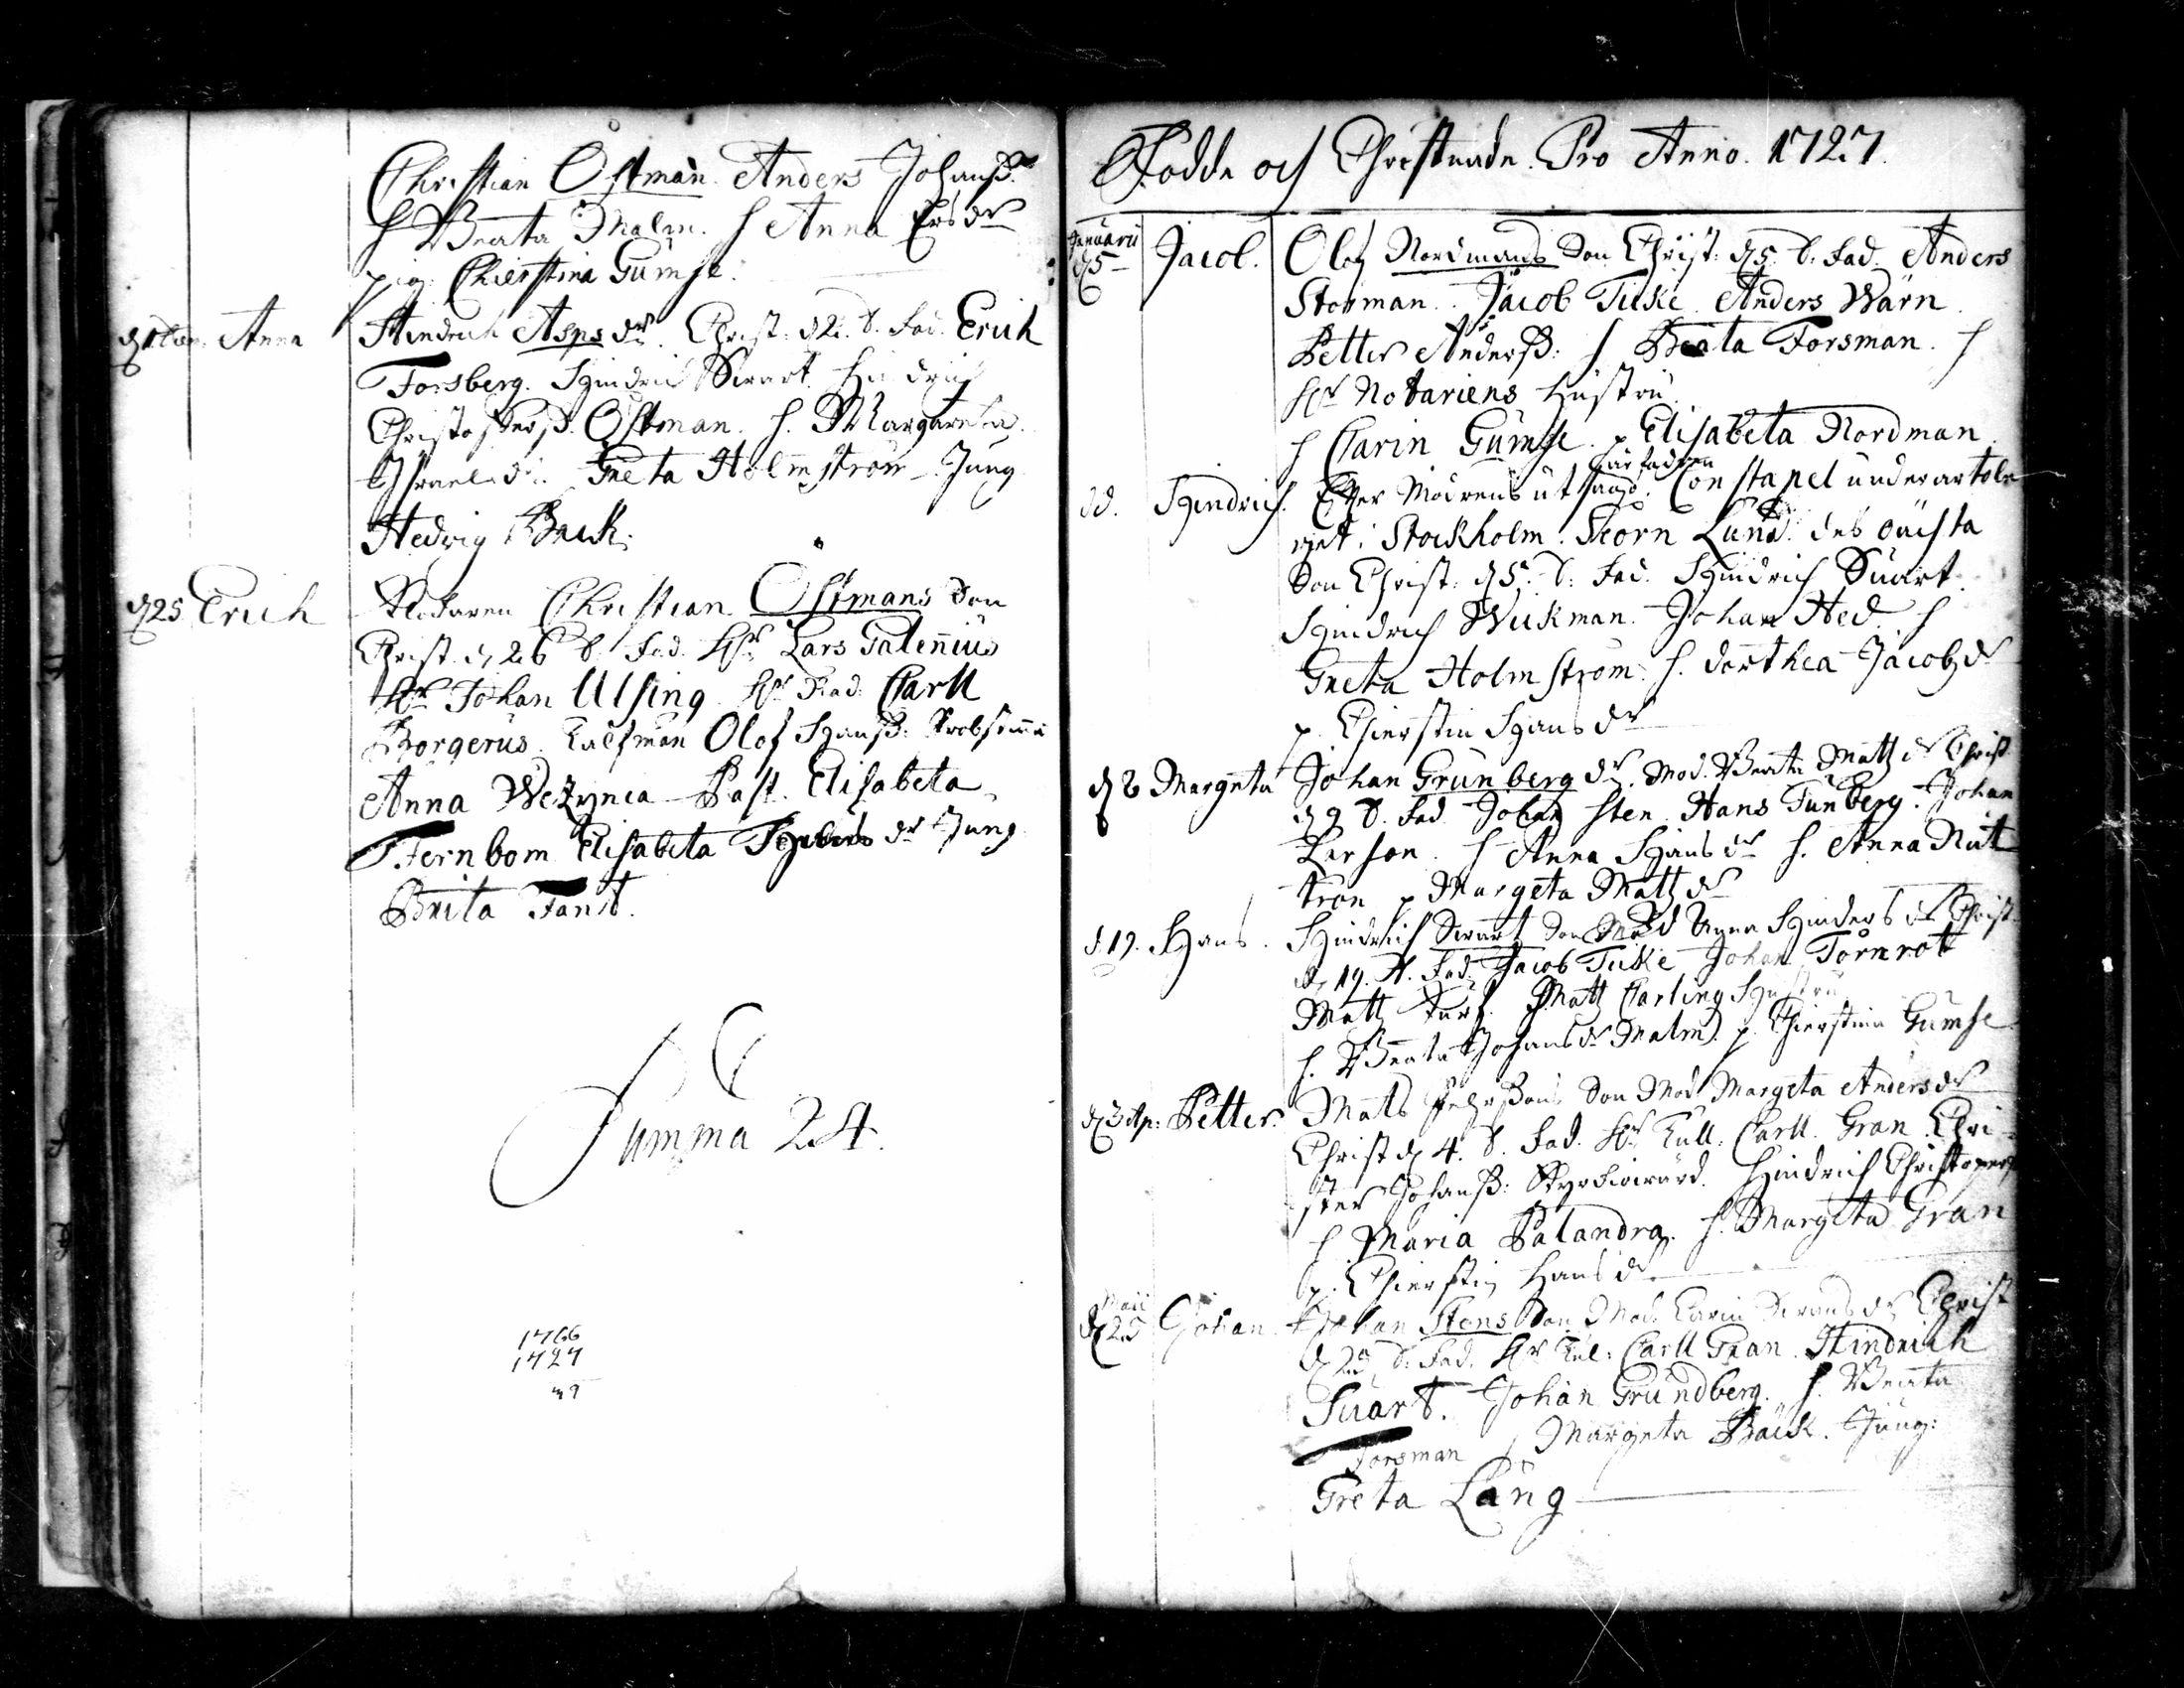 Christian Ostman. Anders Johanß.
h Beata Malm. h Anna Ersdr
pig: Chierstina Gumse.
Anna Hindrich Asps dr. Christ: d 2. d. Fad. Erich
Forsberg. Hindrich Swart. Hindrich
Christofferß. Ostman. h. Margareta
Israels dr. Greta Holmström Jung
Hedvig Back.
d 25 Erich Notarien Christian Ostmans Son
Christ. d. 26 d. Fad. Hr Lars Galenius
Hr Johan Ulsing. Hr Rad: Carll
Borgerus. Kalfman Olof Hanß: Probstinna
Anna Wezynea Past. Elisabeta
Fernbom Elisabeta dr Jung
Brita Fant.
Summa 24.
1766
1727
39
Fodde och Christnade Pro Anno. 1727.
Januarii
d 5 Jacob. Olof Nordmans Son Christ: d 5. d. Fad. Anders
Storman. Jacob Ticke Anders Wärn
Petter Anderß: h Beata Forsman. h
Hr Notariens Hustru.
h Carin Gumse. p Elisabeta Nordman
är fadren
dd. Hindrich. Effter Modrens utsago. Constapel under artole
riet i Stockholm. Biorn Lund. des oächta
Son Christ: d 5. d: Fad. Hindrich Suart.
Hindrich Wickman. Johan Hed. h
Greta Holmström: h. Dorthea Jacobs dr
p. Chierstin Hans dr
d 8 Margreta Johan Grünberg dr. Mod. Beata Matz dr Christ
d 9 d. Fad Johan Sten. Hans Tunberg. Johan
Larson. h Anna Hans dr h. Anna Rut
tron p Margeta Matz dr
d. 19. Hans. Hindrich Swart Son Mod Agnea Hinders dr Christ
d. 19. H. Fad: Jacob Ticke Johan Törnrot
Matz Matz Carling Hustru
h. Beata Johans dr Malm. p. Chierstina Gumse
d 3 Ap: Petter. Mats Pehrßons Son Mod Margeta Anders dr
Christ d 4. d. Fad. Hr Kull: Carll Gran. Chri-
ster Johanß: Kyrckiowärd. Hindrich Christopers
h Maria Palandra. h. Margeta Gran
p. Chierstin Hans dr
Maii
d 25 Johan Johan Stens Son Mod. Carin dr Christ
d 25 d: Fad. Hr Kul: Carll Gran. Hindrich
Suart. Johan Grundberg. h. Beata
Forsman h Margeta Bäck. Jung:
Greta Lång